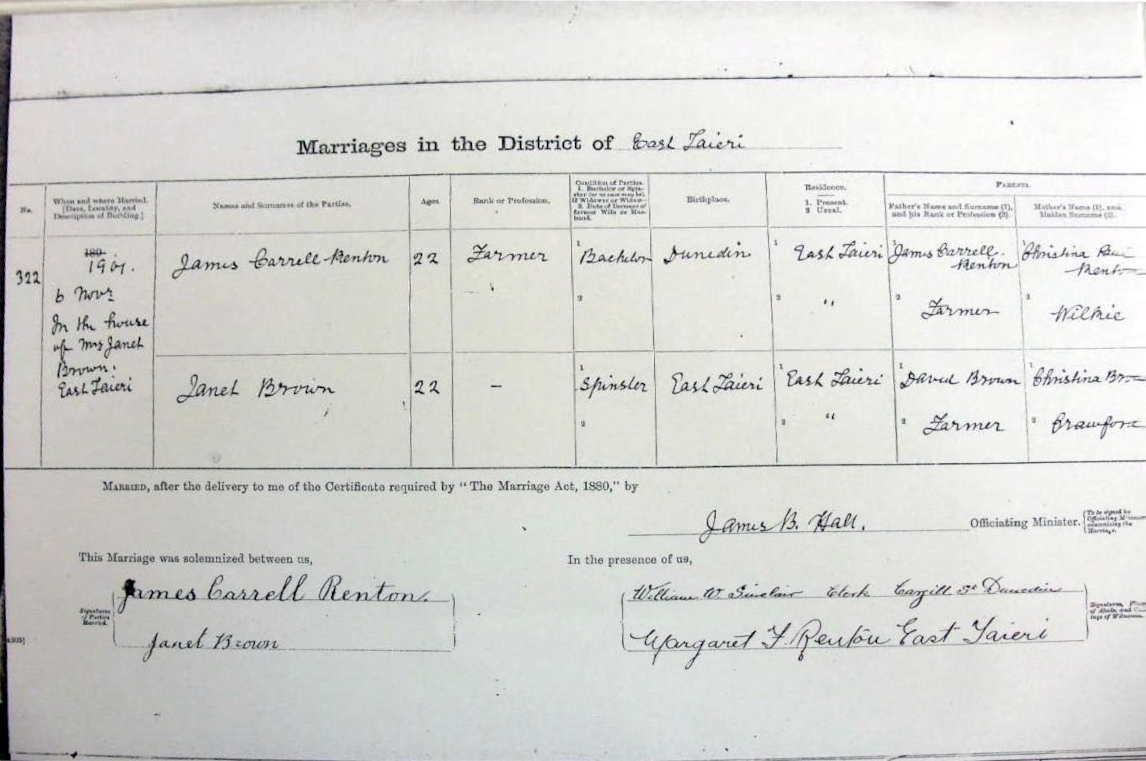 Marriages in the District of East Taieri
No.
When and where Married. [Date, Locality, and Description of Building.]
Names and Surnames of the Parties.
Ages.
Rank or Profession.
Condition of Parties. 1. Bachelor or Spinster (or as case may be). If Widower or Widow— 2. Date of Decease of former Wife or Husband.
Birthplace.
Residence. 1. Present. 2. Usual.
Parents.
Father's Name and Surname (1), and his Rank or Profession (2).
Mother's Name (1), and Maiden Surname (2).
322
189 .
1901.
6 Novr
In the house
of Mrs Janet
Brown.
East Taieri
James Carrell Renton 22 Farmer 1 Bachelor Dunedin 1 East Taieri 1 James Carrell Renton 1 Christina Renton
2 2 " 2 Farmer 2 Wilkie
Janet Brown 22 – 1 Spinster East Taieri 1 East Taieri 1 David Brown 1 Christina Bro
2 2 " 2 Farmer 2 Crawford
Married, after the delivery to me of the Certificate required by "The Marriage Act, 1880," by
James B. Hall. Officiating Minister.
This Marriage was solemnized between us,
In the presence of us,
Signatures of Parties Married.
James Carrell Renton.
Janet Brown
William W. Sinclair Clerk Cargill St Dunedin
Margaret F. Renton East Taieri